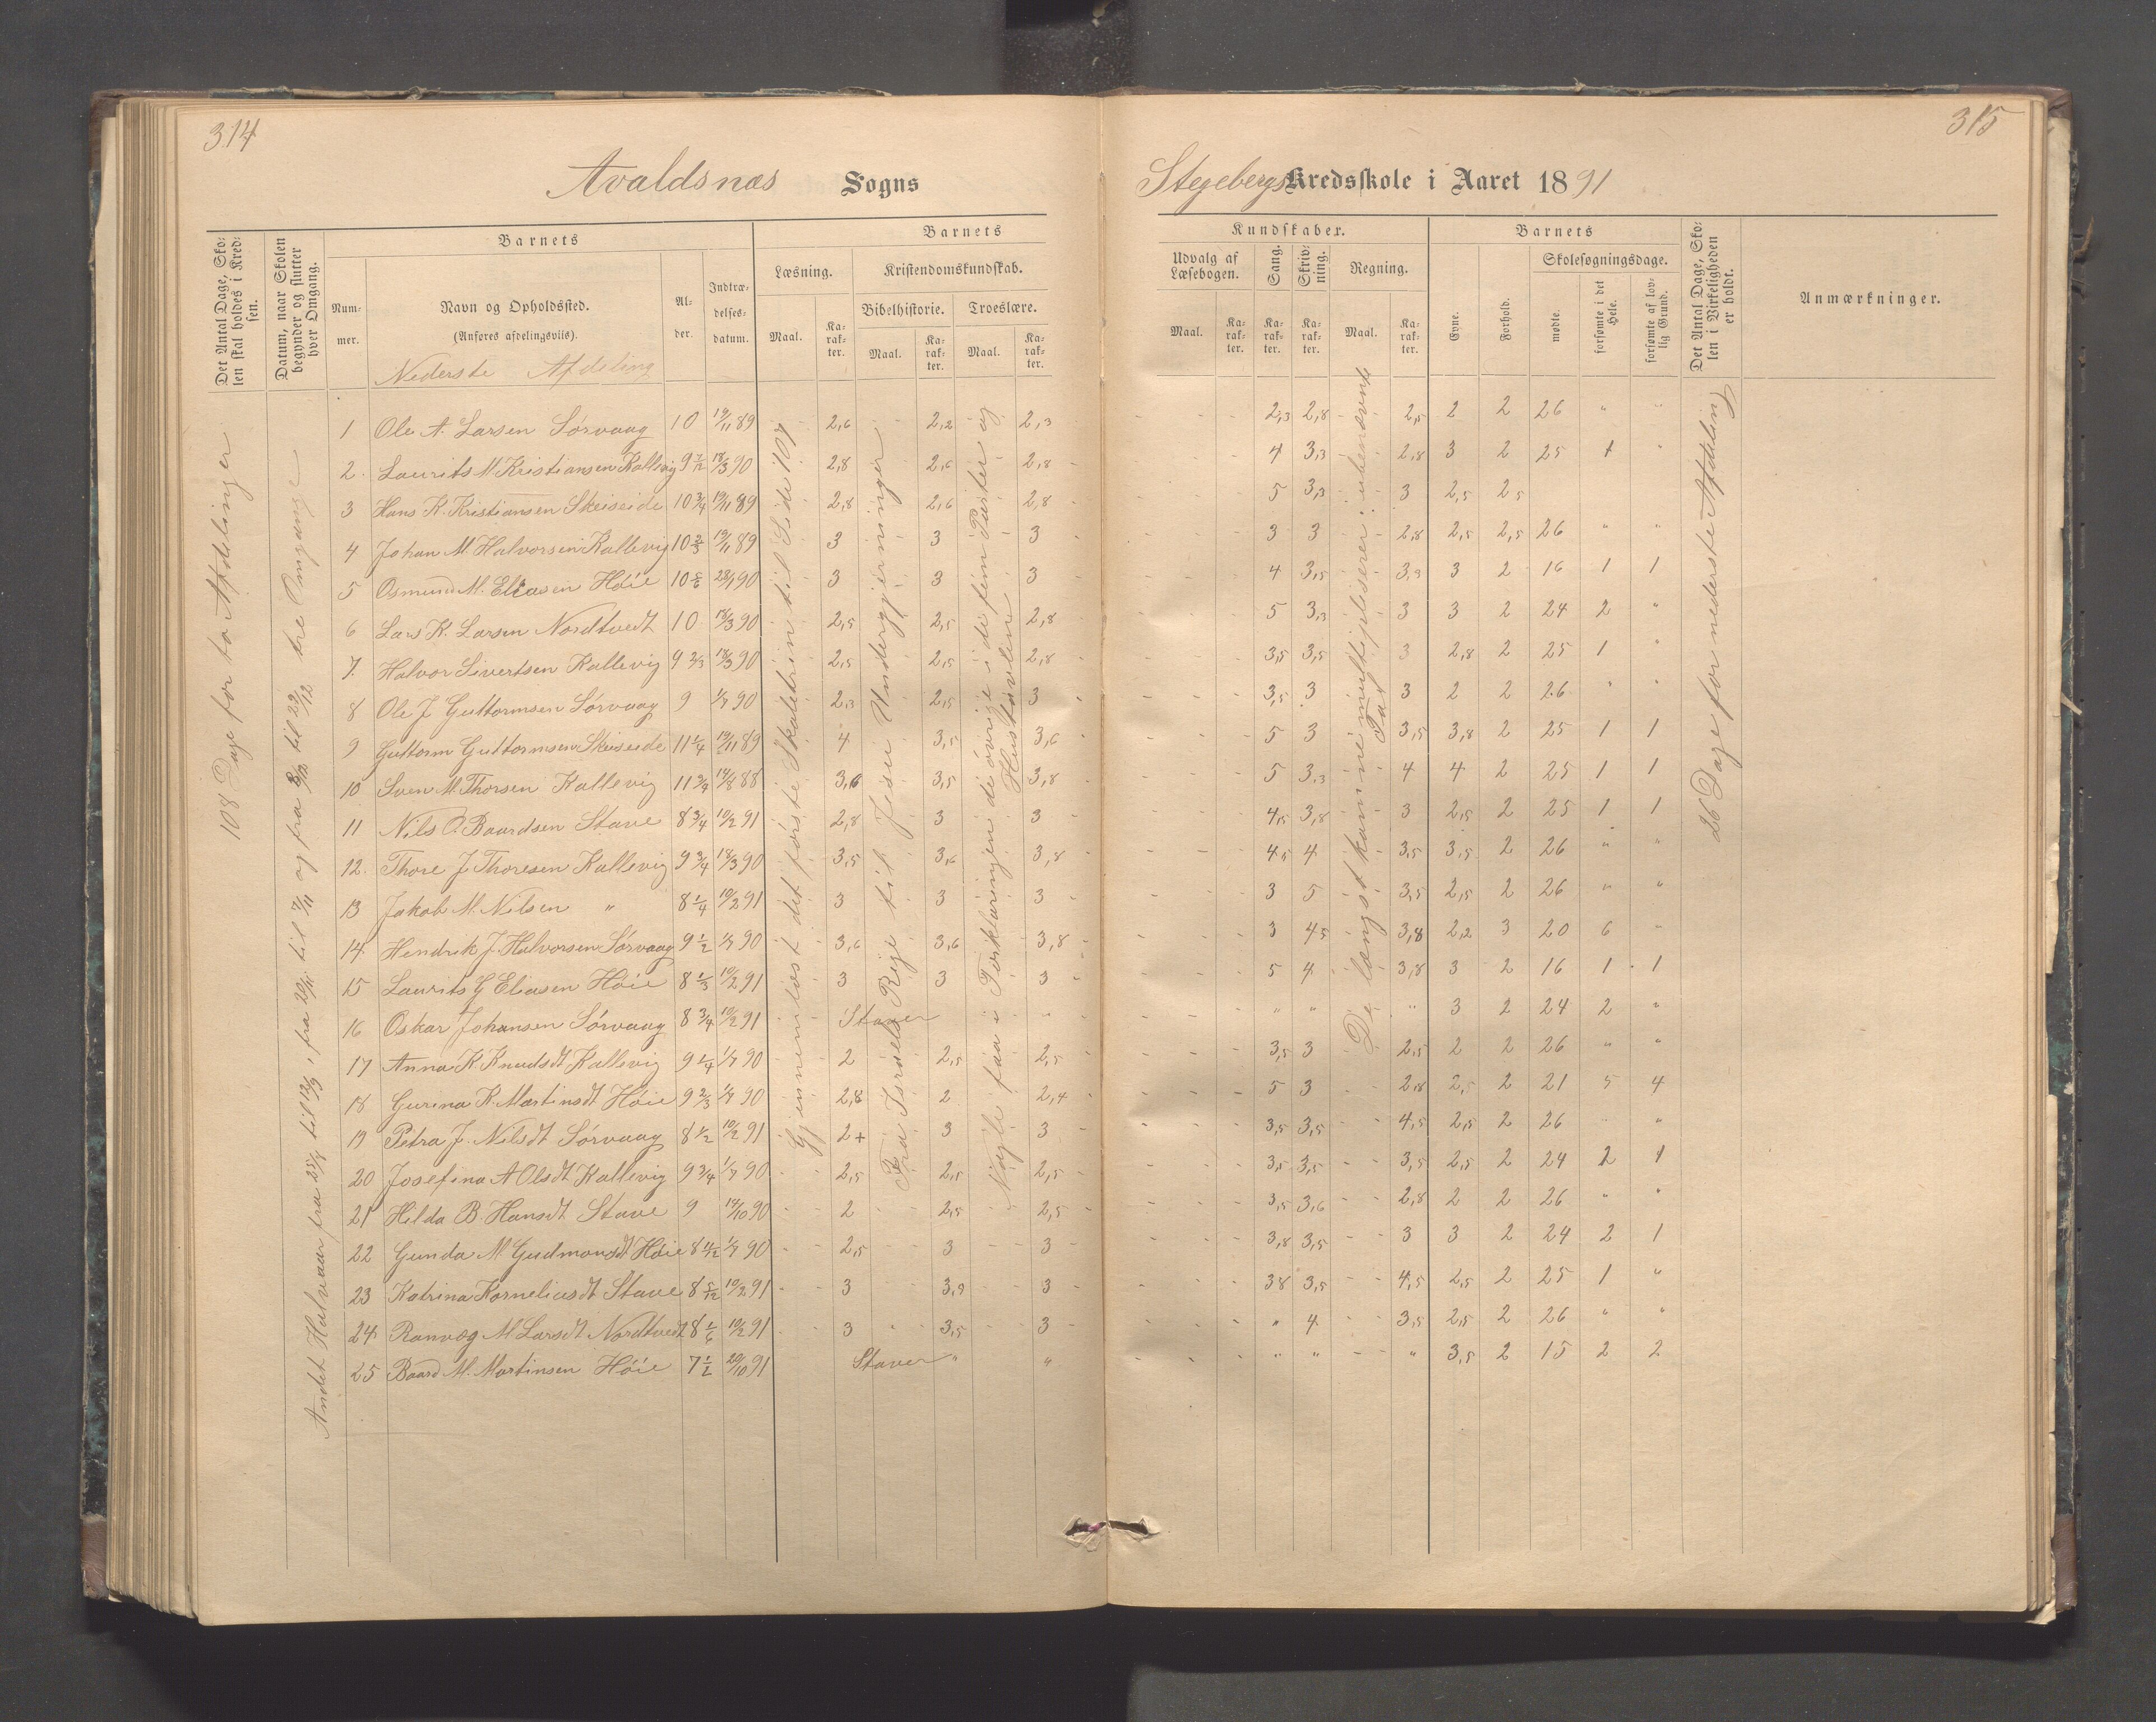 314
315
Avaldsnæs Sogns
Stegebergs Kredsskole i Aaret 1891
Det Antal Dage, Skolen skal holdes i Kredsen.
Datum, naar Skolen begynder og slutter hver Omgang.
Barnets
Nummer.
Navn og Opholdssted.
(Anføres afdelingsviis).
Nederste Afdeling
Alder.
Indtrædelsesdatum.
Barnets
Læsning.
Maal.
Karakter.
Kristendomskundskab.
Bibelhistorie.
Maal.
Karakter.
Troeslære.
Maal.
Karakter.
Kundskaber.
Udvalg af Læsebogen.
Maal.
Karakter.
Sang.
Karakter.
Skrivning.
Karakter.
Regning.
Maal.
Karakter.
Barnets
Evne.
Forhold.
Skolesøgningsdage.
mødte.
forsømte i det Hele.
forsømte af lovlig Grund.
Det Antal Dage, Skolen i Virkeligheden er holdt.
Anmærkninger.
108 Dage for to Afdelinger
Andet Halvaar fra 25/8 til 12/9, fra 20/11 til 7/11 og fra 8/12 til 22/12 tre Omgange
Gjennemlæst det første Skoletrin til Side 107
Fra Israels Rige til Jesu Undergjerninger
Nogle faa i Forklaringen de øvrige i de fem Parter og Hustavlen
De længst kommne multipliserer ubenævnte Tal
26 Dage for nederste Afdeling
1 Ole A. Larsen Sørvaag 10 19/11 89 2,6 2,2 2,3 2,3 2,8 2,5 2 2 26 " "
2 Laurits M. Kristiansen Kallevig 9 7/12 18/3 90 2,8 2,6 2,8 4 3,3 2,8 3 2 25 1 "
3 Hans K. Kristiansen Skeiseide 10 3/4 19/11 89 2,8 2,6 2,8 5 3,3 3 2,5 2,5
4 Johan M. Halvorsen Kallevig 10 2/3 19/11 89 3 3 3 3 3 2,8 2,5 2,5 26 " "
5 Osmund M. Eliasen Høie 10 5/6 23/1 90 3 3 3 4 3,5 3,3 3 2 16 1 1
6 Lars K. Larsen Nordtvedt 10 18/3 90 2,5 2,5 2,8 5 3,3 3 3 2 24 2 "
7 Halvor Sivertsen Kallevig 9 2/3 18/3 90 2,5 2,5 2,8 3,5 3,5 3 2,8 2 25 1 "
8 Ole J Guttormsen Sørvaag 9 1/7 90 2,3 2,5 3 3,5 3 3 2 2 26 " "
9 Guttorm Guttormsen Skeiseide 11 1/4 19/11 89 4 3,5 3,6 5 3 3,5 3,8 2 25 1 1
10 Sven M. Thorsen Kallevig 11 3/4 14/8 88 3,6 3,5 3,8 5 3,3 4 4 2 25 1 1
11 Nils O. Baardsen Stave 8 3/4 10/2 91 2,8 3 3 4,5 3,8 3 2,5 2 25 1 1
12 Thore J Thoresen Kallevig 9 3/4 18/3 90 3,5 3,6 3,8 4,5 4 3,5 3,5 2 26 " "
13 Jakob M. Nilsen " 8 1/4 10/2 91 3 3 3 3 5 3,5 2,5 2 26 " "
14 Hendrik J. Halvorsen Sørvaag 9 1/2 1/7 90 3,6 3,6 3,8 3 4,5 3,8 2,2 3 20 6 -
15 Laurits G Eliasen Høie 8 1/3 10/2 91 3 3 3 5 4 3,8 3 2 16 1 1
16 Oskar Johansen Sørvaag 8 3/4 10/2 91 Staver " " " " 3 2 24 2 "
17 Anna K Knudsdt Kallevig 9 1/4 1/7 90 2 2,5 2,5 3,5 3 2,5 2 2 26 " "
18 Gurina K. Martinsdt Høie 9 2/3 1/7 90 2,8 2 2,4 5 3 2,8 2,5 2 21 5 4
19 Petra J. Nilsdt Sørvaag 8 1/2 10/2 91 2+ 3 3 3,5 3,5 4,5 2,5 2 26 " "
20 Josefina A Olsdt Kallevig 9 3/4 1/7 90 2,5 2,5 2,5 3,5 3,5 3,5 2,5 2 24 2 1
21 Hilda B. Hansdt Stave 9 14/10 90 2 2,5 2,5 3,5 3,6 2,8 2 2 26 " "
22 Gunda M. Gudmonsdt Høie 8 11/12 1/7 90 2,5 3 3 3,8 3,5 3 3 2 24 2 1
23 Katrina Korneliusdt Stave 8 5/12 10/2 91 3 3,9 3 3,8 3,5 4,5 2,5 2 25 1 "
24 Ranvæg M Larsdt Nordtvedt 8 1/6 10/2 91 3 3,5 3 " 4 3,5 2,5 2 26 " "
25 Baard M. Martinsen Høie 7 1/2 20/10 91 Staver " " " " " 3,5 2 15 2 2